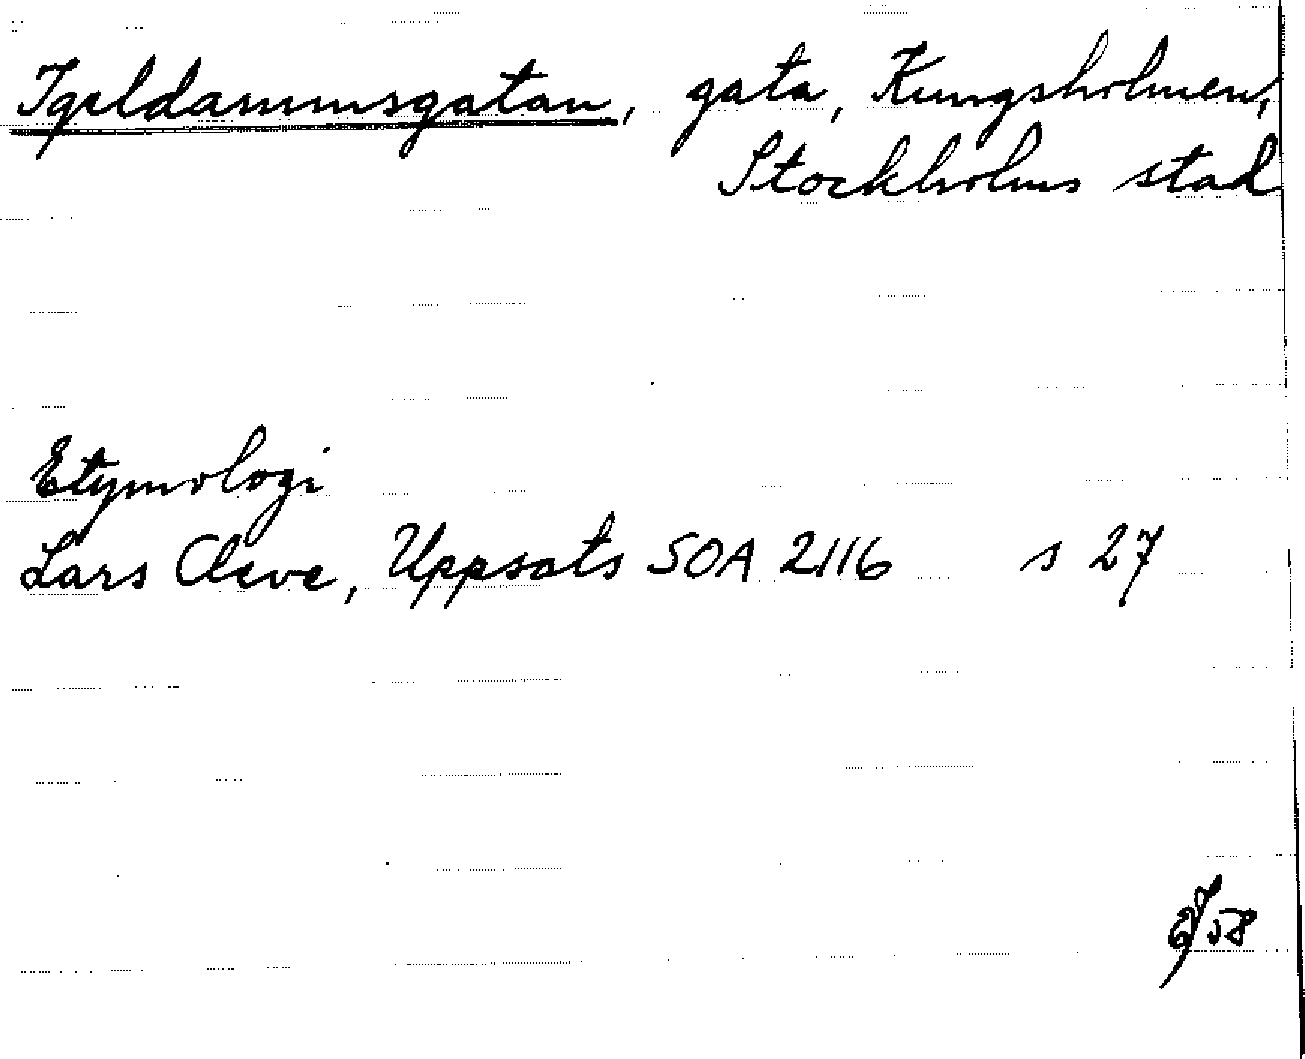 Igeldammsgatan, gata, Kungsholmen,
Stockholms stad
Etymologi
Lars Cleve, Uppsats SOA 2116 s 27